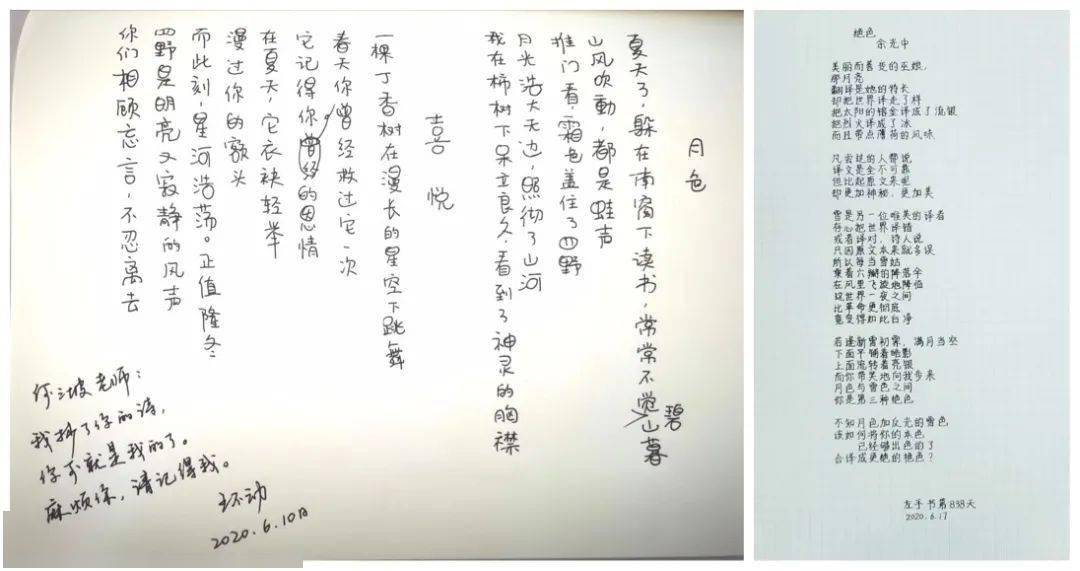 月色
夏天了，躲在南窗下读书，常常不觉碧山暮
山风吹動，都是蛙声
推门看，霜色盖住了四野
月光浩大无边，照彻了山河
我在柿树下呆立良久，看到了神灵的胸襟
喜悦
一棵丁香树在漫长的星空下跳舞
春天你曾经救过它一次
它记得你曾经的恩情
在夏天，它衣袂轻举
漫过你的额头
而此刻，星河浩荡。正值隆冬
四野是明亮又寂静的风声
你们相顾忘言，不忍离去
何三坡老师：
我抄了你的诗，
你就是我的了。
麻烦你，请记得我。
2020.6.10日
绝色
余光中
美丽而善变的巫娘，
那月亮
翻译是她的特长
却把世界译走了样
把太阳的镕金译成了流银
把烈火译成了冰
而且带点薄荷的风味
凡尝过的人都说
译文是全不可靠
但比起原文来呢
却更加神秘，更加美
雪是另一位唯美的译者
存心把世界译错
或者译对，诗人说
只因原文本来就多误
所以每当雪姑
乘着六瓣的降落伞
在风里飞旋地降临
这世界一夜之间
比革命更彻底
竟变得如此白净
若逢新雪初霁，满月当空
下面平铺着皓影
上面流转着亮银
而你带笑地向我步来
月色与雪色之间
你是第三种绝色
不知月色加反光的雪色
该如何将你的本色
已经够出色的了
合译成更绝的艳色？
左手书第838天
2020.6.17